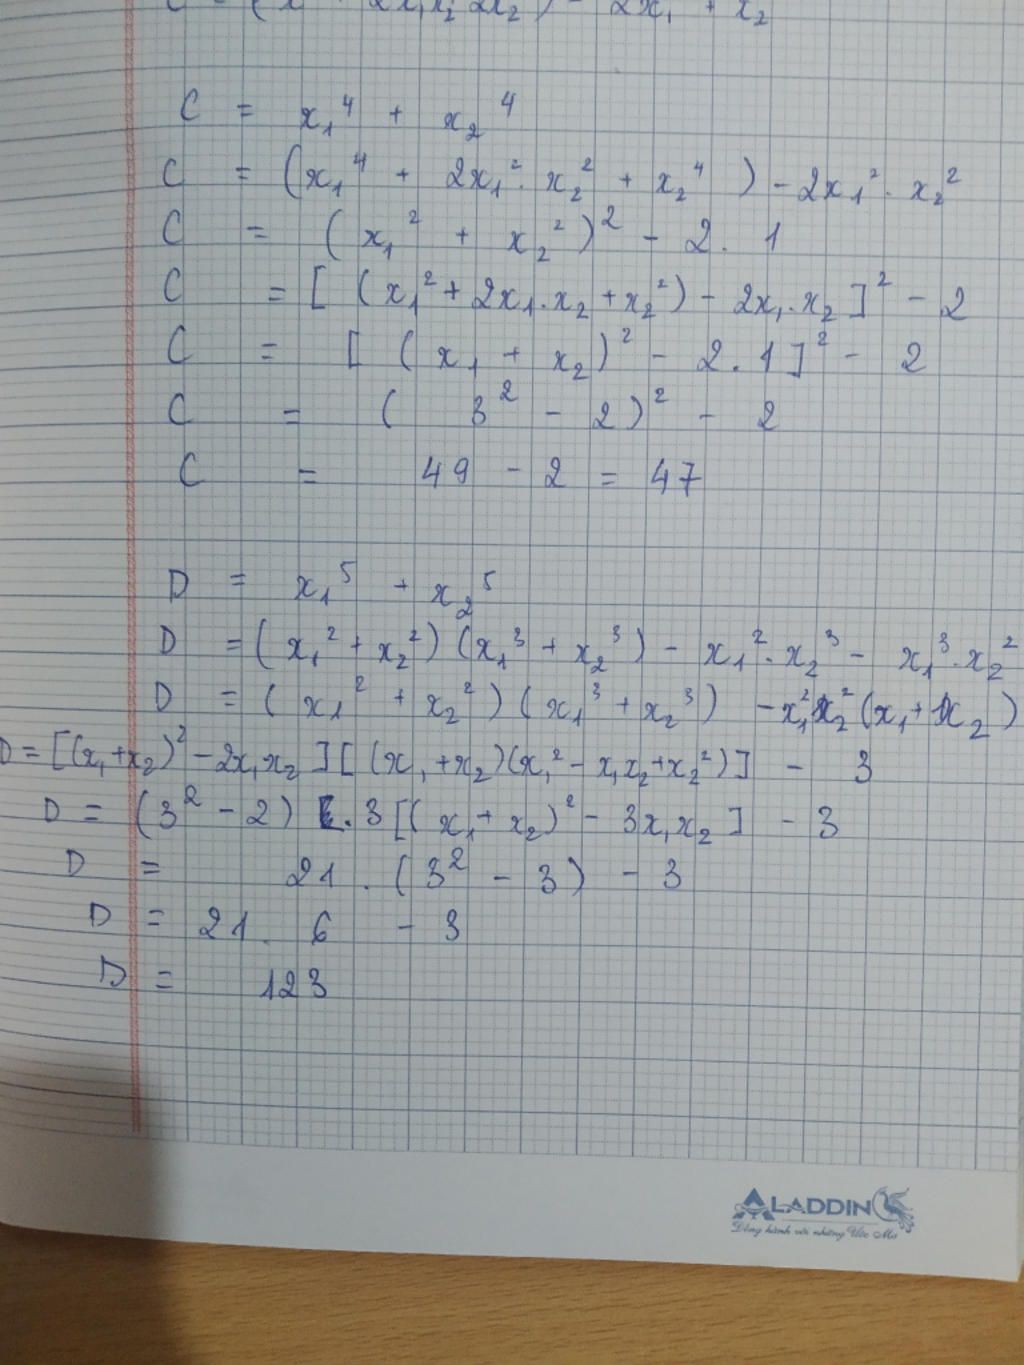 C = x₁⁴ + x₂⁴
C = (x₁⁴ + 2x₁². x₂² + x₂⁴) - 2x₁². x₂²
C = (x₁² + x₂²)² - 2. 1
C = [(x₁² + 2x₁.x₂ + x₂²) - 2x₁.x₂]² - 2
C = [(x₁ + x₂)² - 2.1]² - 2
C = (3² - 2)² - 2
C = 49 - 2 = 47
D = x₁⁵ + x₂⁵
D = (x₁² + x₂²)(x₁³ + x₂³) - x₁².x₂³ - x₁³.x₂²
D = (x₁² + x₂²)(x₁³ + x₂³) - x₁²x₂²(x₁ + x₂)
D = [(x₁+x₂)² - 2x₁x₂][(x₁+x₂)(x₁² - x₁x₂+x₂²)] - 3
D = (3² - 2).3[(x₁+ x₂)² - 3x₁x₂] - 3
D = 21.(3² - 3) - 3
D = 21. 6 - 3
D = 123
ALADDIN
Đồng hành với những Ước Mơ